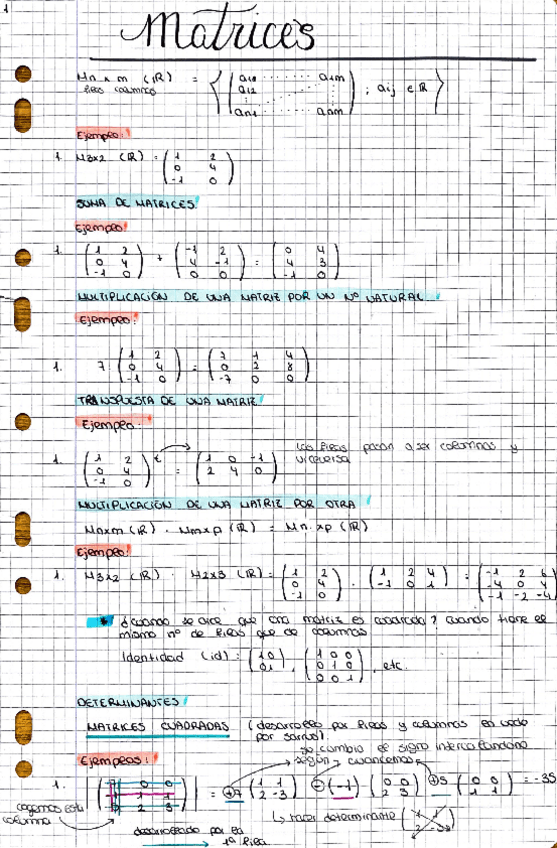 1
Matrices
Mn x m (IR) = { ( a11 ...... a1m
filas columnas a12
an1 ...... anm ) ; aij ∈ IR }
Ejemplo:
1. M3x2 (IR) = ( 1 2
0 4
-1 0 )
SUMA DE MATRICES
Ejemplo:
1. ( 1 2 ) + ( -1 2 ) = ( 0 4 )
( 0 4 ) ( 4 -1 ) ( 4 3 )
( -1 0 ) ( 0 0 ) ( -1 0 )
MULTIPLICACIÓN DE UNA MATRIZ POR UN Nº NATURAL
Ejemplo:
1. 7 ( 1 2 ) = ( 7 1 4 )
( 0 4 ) ( 0 2 8 )
( -1 0 ) ( -7 0 0 )
TRANSPUESTA DE UNA MATRIZ
Ejemplo.
1. ( 1 2 ) t = ( 1 0 -1 ) Las filas pasan a ser columnas y
( 0 4 ) ( 2 4 0 ) viceversa
( -1 0 )
MULTIPLICACIÓN DE UNA MATRIZ POR OTRA
Mnxm (IR) . Mmxp (IR) = Mn.xp (IR)
Ejemplo:
1. M3x2 (IR) . M2x3 (IR) = ( 1 2 ) . ( 1 2 4 ) = ( -1 2 6 )
( 0 4 ) ( -1 0 1 ) ( -4 0 4 )
( -1 0 ) ( -1 -2 -4 )
* ¿Cuando se dice que una matriz es cuadrada? Cuando tiene el
mismo nº de filas que de columnas
Identidad (id) : ( 1 0 ) , ( 1 0 0 ) , etc.
( 0 1 ) ( 0 1 0 )
( 0 0 1 )
DETERMINANTES
MATRICES CUADRADAS (desarrollo por filas y columnas en vedo
por sarrus).
Se cambia el signo intercalandono
según cuarcemos
Ejemplos:
1. 0 0 = +7 ( 1 1 ) - (-1) ( 0 0 ) +5 ( 0 0 ) = -35
( 2 -3 ) ( 2 3 ) ( 1 1 )
2 3
cogemos esta
columna
desarrollado por la
1ª fila
↳ hacer determinante